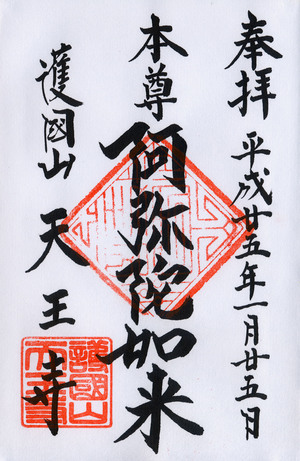 奉拝
平成廿五年一月廿五日
本尊
阿弥陀如来
護國山
天王寺
護國山
天王寺